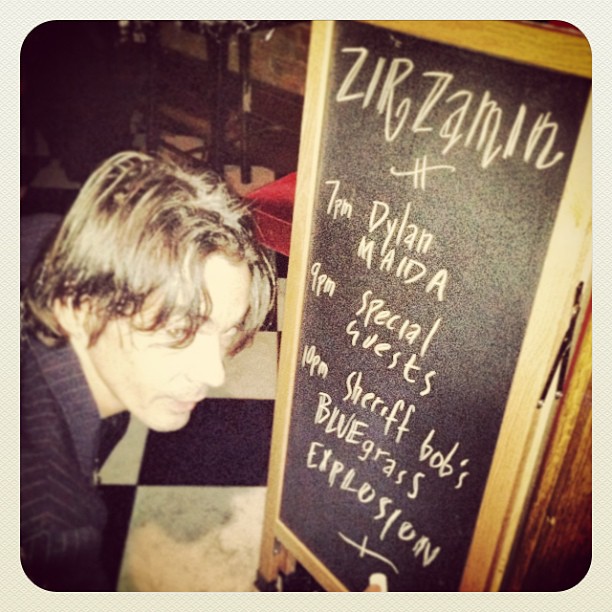 ZIRZamin
7pm Dylan
MAIDA
9pm Special
Guests
10pm Sheriff bob's
BLUEgrass
EXPLOSION